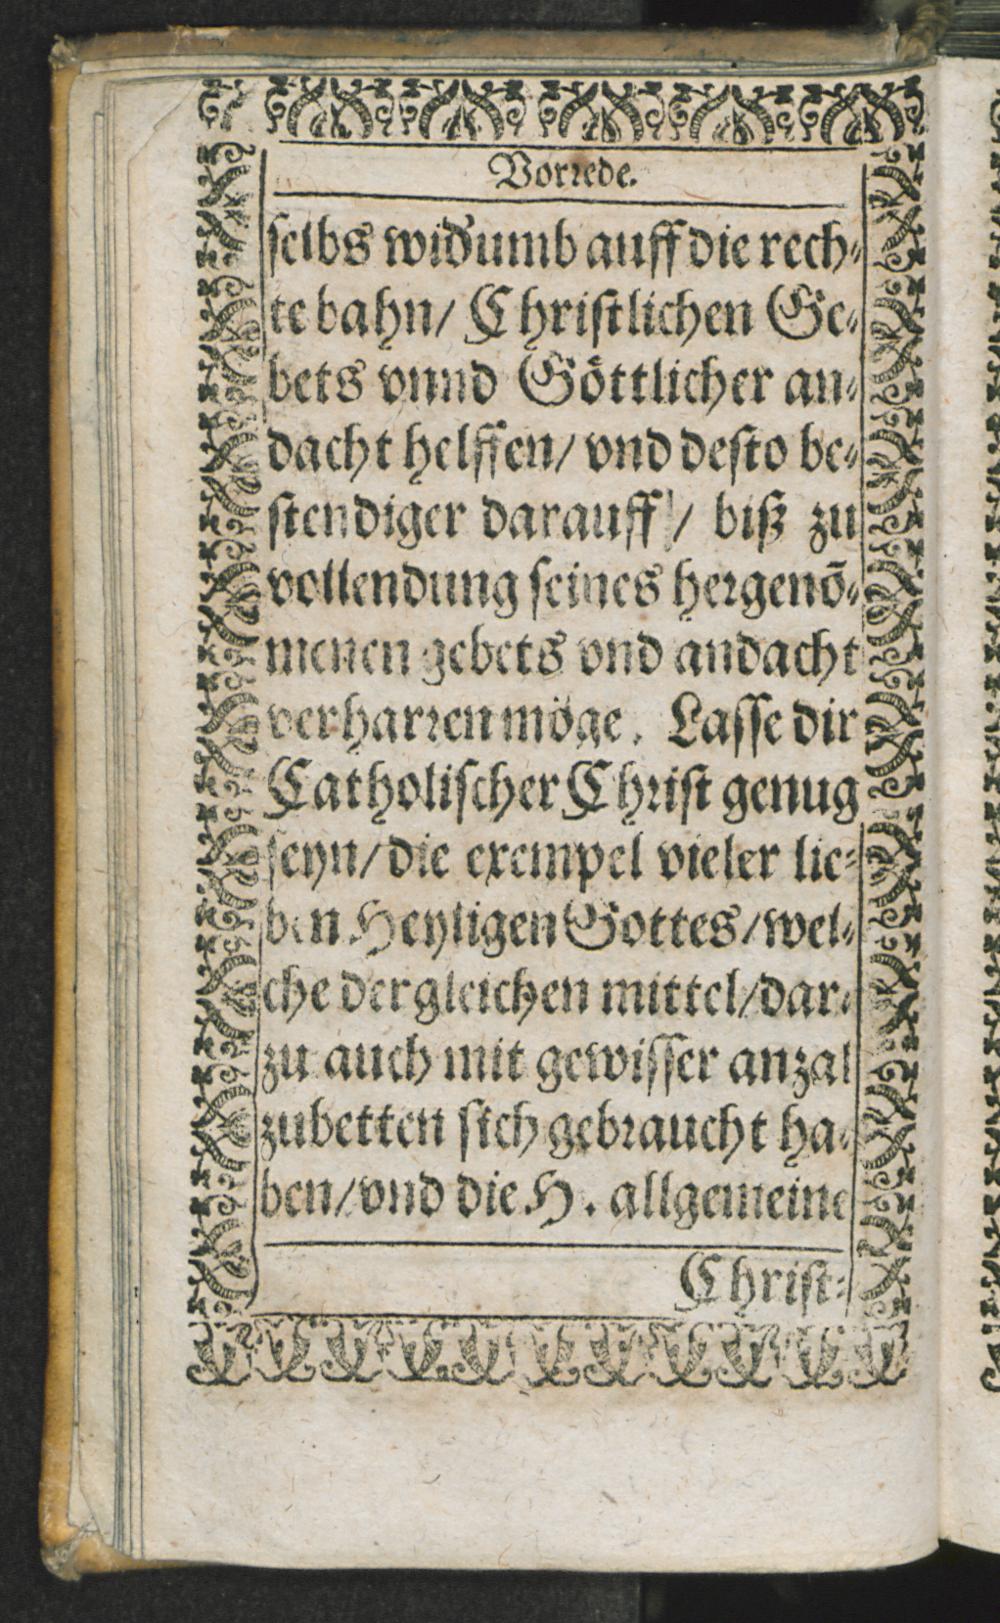 Vorꝛede.
ſelbs wid'umb auff die rech⸗
te bahn/ Chriſtlichen Ge⸗
bets vnnd Göttlicher an⸗
dacht helffen/ vnd deſto be⸗
ſtendiger darauff / biß zu
vollendung ſeines heꝛgenō⸗
menen gebets vnd andacht
verharꝛen möge. Laſſe dir
Catholiſcher Chꝛiſt genug
ſeyn/ die exempel vieler lie⸗
ben Heyligen Gottes/ wel⸗
che dergleichen mittel/ dar⸗
zu auch mit gewiſſer anzal
zubetten ſich gebꝛaucht ha⸗
ben/ vnd die H. allgemeine
Chriſt⸗